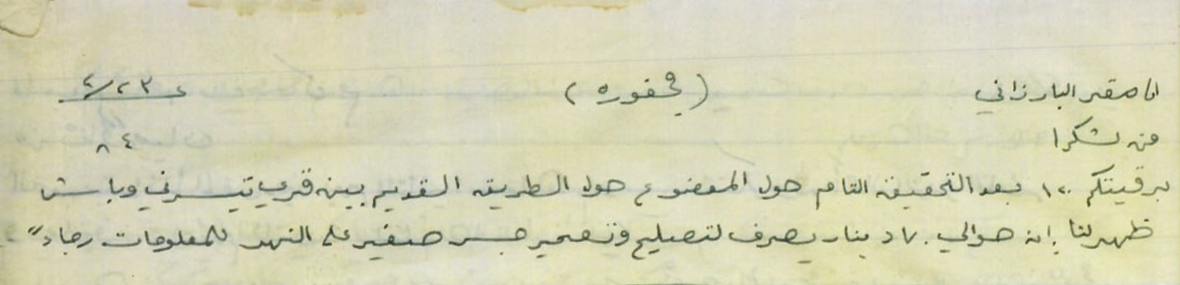 الى مقر البارزاني (محفوره) ٤/٢٣
من لشكرا ٨٤
برقيتكم ١٢٠ بعد التحقيق التام حول الموضوع حول الطريق القديم بين قرى تيرني وباش
ظهر لنا بان حوالي دينار يصرف لتصليح وتعمير جسر صغير على النهر للمعلومات رجاء"